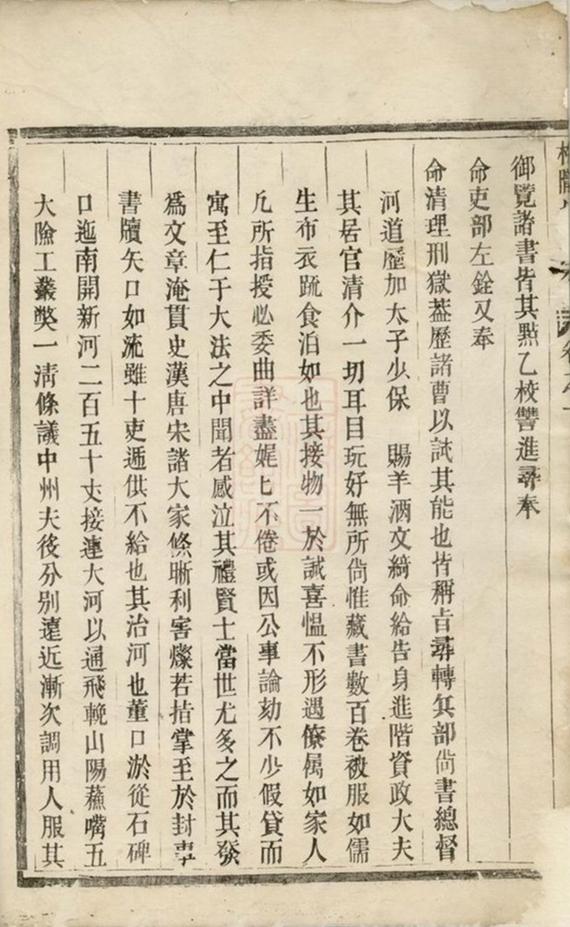 御覽諸書皆其點乙校讐進尋奉
命吏部左銓又奉
命清理刑獄葢歷諸曹以試其能也皆稱旨尋轉兵部尙書總督
河道歷加太子少保 賜羊酒文綺命給告身進階資政大夫
其居官清介一切耳目玩好無所尙惟藏書數百卷被服如儒
生布衣蔬食泊如也其接物一於誠喜慍不形遇僚属如家人
凢所指授必委曲詳盡娓匕不倦或因公事論劾不少假貸而
寓至仁于大法之中聞者感泣其禮賢士當世尤多之而其發
爲文章淹貫史漢唐宋諸大家條晰利害燦若指掌至於封事
書牘矢口如流雖十吏遞供不給也其治河也董口淤從石碑
口迤南開新河二百五十丈接連大河以通飛輓山陽蕪嘴五
大險工叢獘一清條議中州夫後分别遠近漸次調用人服其